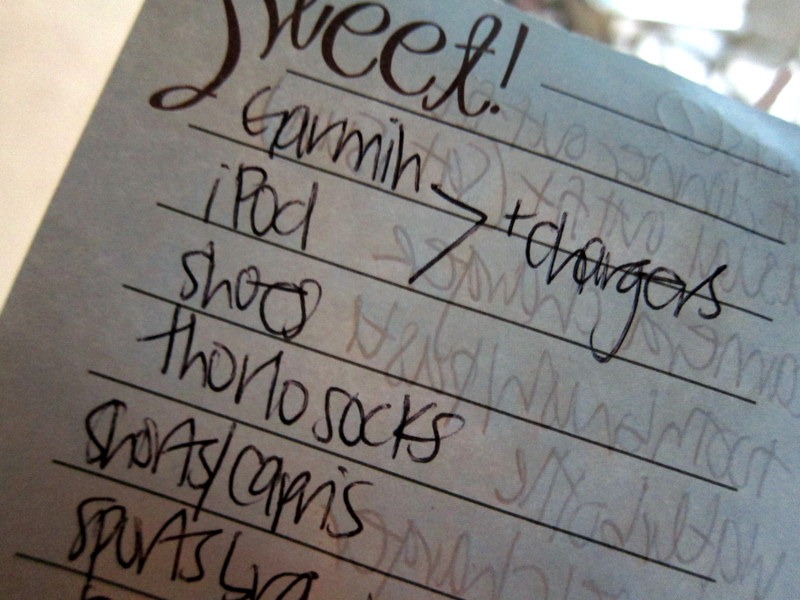 Sweet!
Garmin
iPod
> + chargers
shoes
thorlo socks
shorts/capris
sports bra